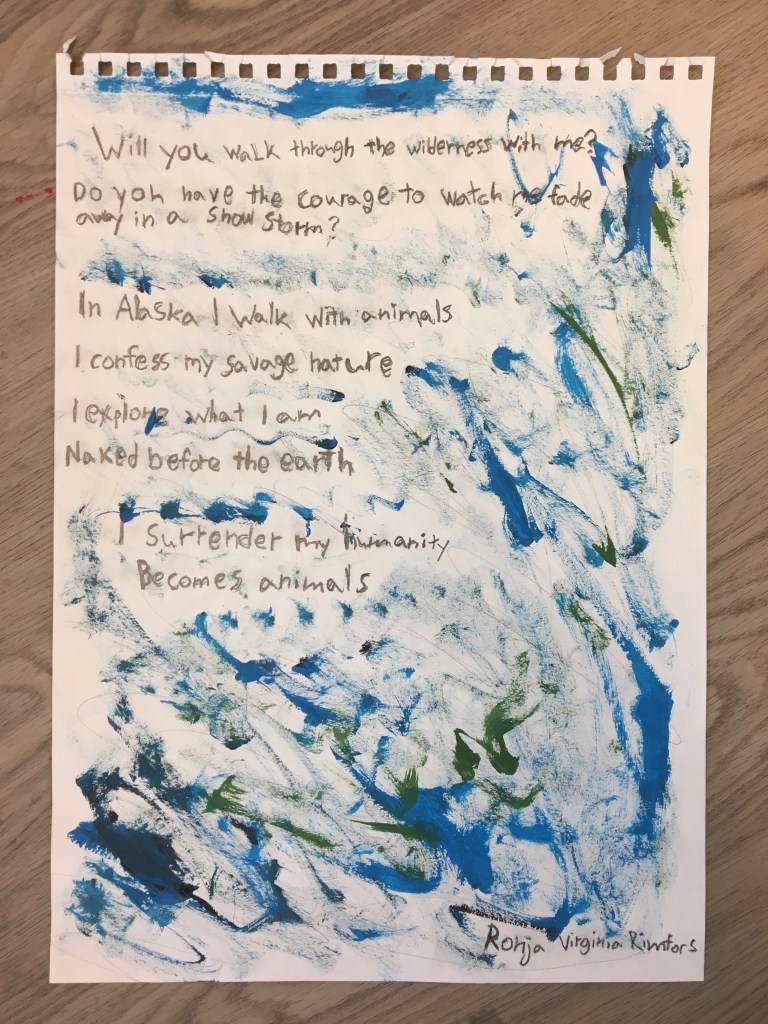 Will you walk through the wilderness with me?
Do you have the courage to watch me fade
away in a snow storm?
In Alaska I walk with animals
I confess my savage nature
I explore what I am
Naked before the earth
I surrender my humanity
Becomes animals
Ronja Virginia Rimfors